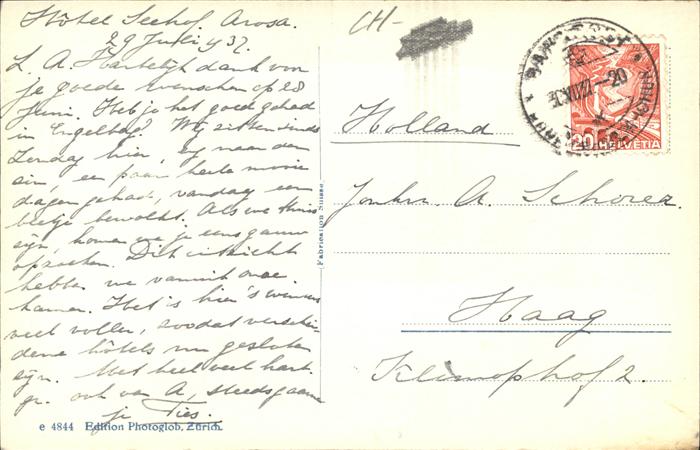 Hôtel Seehof Arosa.
29 Juli '37.
L. A. Hartelijk dank voor
je goede wenschen op 28
Juni. Heb je het goed gehad
in Engelberg? Wij zitten sinds
Zondag hier, naar den
zin, een paar heele mooie
dagen gehad, vandaag een
beetje bewolkt. Als we thuis
zijn, komen we je eens gauw
opzoeken. Dit uitzicht
hebben we vanuit onze
kamer. Het is hier 's winters
veel voller, zoodat verschei-
dene hôtels nu gesloten
zijn. Met heel veel hart.
gr. ook van A, steeds gaarne
je Ties.
e 4844 Edition Photoglob, Zürich.
Fabrication Suisse
CH-
Holland
Jonkvr. A. Schorer
Haag
Klimophof 2.
20 HELVETIA